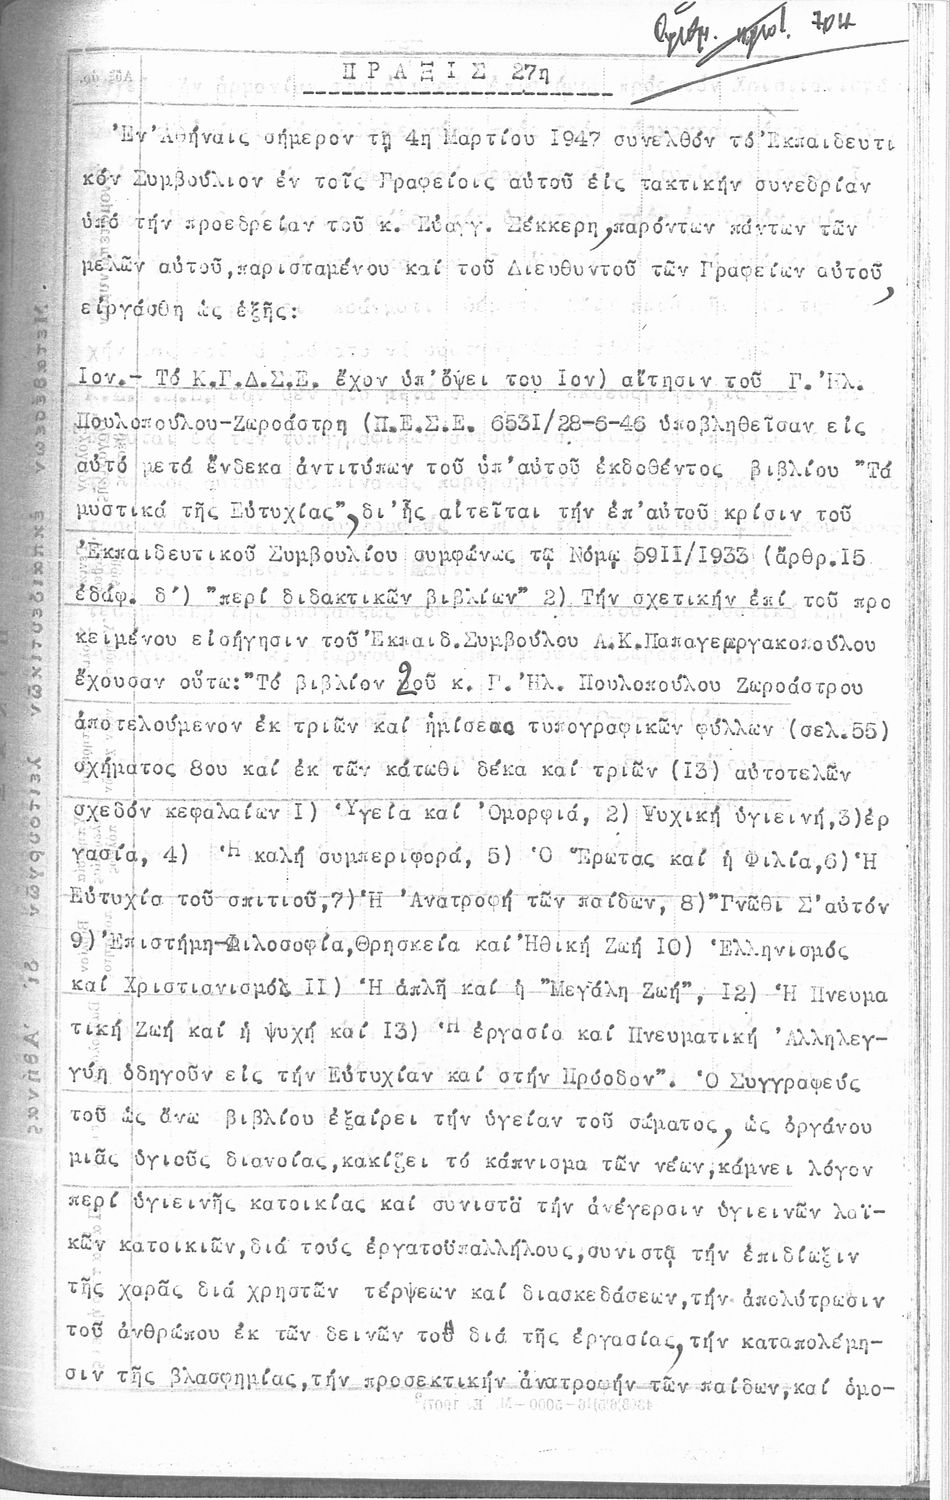 Π Ρ Α Ξ Ι Σ 27η
Ἐν Ἀθήναις σήμερον τῇ 4η Μαρτίου 1947 συνελθόν τό Ἐκπαιδευτι
κόν Συμβούλιον ἐν τοῖς Γραφείοις αὐτοῦ εἰς τακτικήν συνεδρίαν
ὑπό τήν προεδρείαν τοῦ κ. Εὐαγγ. Σέκκερη, παρόντων πάντων τῶν
μελῶν αὐτοῦ, παρισταμένου καί τοῦ Διευθυντοῦ τῶν Γραφείων αὐτοῦ,
εἰργάσθη ὡς ἑξῆς:
Ιον.- Τό Κ.Γ.Δ.Σ.Ε. ἔχον ὑπ' ὄψει του Ιον) αἴτησιν τοῦ Γ. Ἠλ.
Πουλοπούλου-Ζωροάστρη (Π.Ε.Σ.Ε. 6531/28-6-46 ὑποβληθεῖσαν εἰς
αὐτό μετά ἕνδεκα ἀντιτύπων τοῦ ὑπ' αὐτοῦ ἐκδοθέντος βιβλίου "Τά
μυστικά τῆς Εὐτυχίας", δι' ἧς αἰτεῖται τήν ἐπ' αὐτοῦ κρίσιν τοῦ
Ἐκπαιδευτικοῦ Συμβουλίου συμφώνως τῷ Νόμῳ 5911/1933 (ἄρθρ.15
ἐδάφ. δ') "περί διδακτικῶν βιβλίων" 2) Τήν σχετικήν ἐπί τοῦ προ
κειμένου εἰσήγησιν τοῦ Ἐκπαιδ.Συμβούλου Α.Κ.Παπαγεωργακοπούλου
ἔχουσαν οὕτω: "Τό βιβλίον τοῦ κ. Γ. Ἠλ. Πουλοπούλου Ζωροάστρου
ἀποτελούμενον ἐκ τριῶν καί ἡμίσεος τυπογραφικῶν φύλλων (σελ.55)
σχήματος 8ου καί ἐκ τῶν κάτωθι δέκα καί τριῶν (13) αὐτοτελῶν
σχεδόν κεφαλαίων 1) Ὑγεία καί Ὀμορφιά, 2) Ψυχική ὑγιεινή, 3) ἐρ
γασία, 4) Ἡ καλή συμπεριφορά, 5) Ὁ Ἔρωτας καί ἡ Φιλία, 6) Ἡ
Εὐτυχία τοῦ σπιτιοῦ, 7) Ἡ Ἀνατροφή τῶν παίδων, 8) "Γνῶθι Σ'αὐτόν
9) Ἐπιστήμη-Φιλοσοφία, Θρησκεία καί Ἠθική Ζωή 10) Ἑλληνισμός
καί Χριστιανισμός 11) Ἡ ἁπλῆ καί ἡ "Μεγάλη Ζωή", 12) Ἡ Πνευμα
τική Ζωή καί ἡ ψυχή καί 13) Ἡ ἐργασία καί Πνευματική Ἀλληλεγ-
γύη ὁδηγοῦν εἰς τήν Εὐτυχίαν καί στήν Πρόοδον". Ὁ Συγγραφεύς
τοῦ ὡς ἄνω βιβλίου ἐξαίρει τήν ὑγείαν τοῦ σώματος, ὡς ὀργάνου
μιᾶς ὑγιοῦς διανοίας, κακίζει τό κάπνισμα τῶν νέων, κάμνει λόγον
περί ὑγιεινῆς κατοικίας καί συνιστᾶ τήν ἀνέγερσιν ὑγιεινῶν λαϊ-
κῶν κατοικιῶν, διά τούς ἐργατοϋπαλλήλους, συνιστᾷ τήν ἐπιδίωξιν
τῆς χαρᾶς διά χρηστῶν τέρψεων καί διασκεδάσεων, τήν ἀπολύτρωσιν
τοῦ ἀνθρώπου ἐκ τῶν δεινῶν του διά τῆς ἐργασίας, τήν καταπολέμη-
σιν τῆς βλασφημίας, τήν προσεκτικήν ἀνατροφήν τῶν παίδων, καί ὁμο-